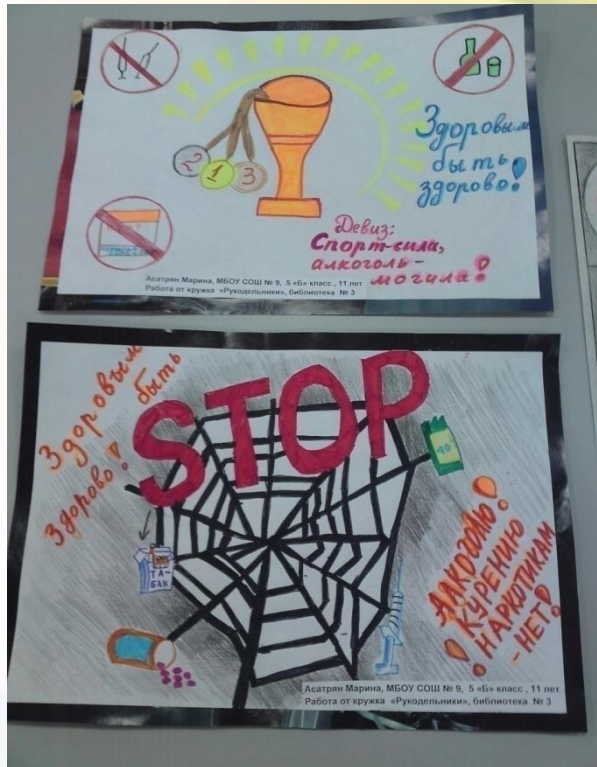 Здоровым
быть
здорово!
2 1 3
Девиз:
Спорт-сила,
алкоголь-
могила!
Асатрян Марина, МБОУ СОШ № 9, 5 «Б» класс , 11 лет
Работа от кружка «Рукодельники», библиотека № 3
Здоровым быть
Здорово!
STOP
40°
ТА-
БАК
АЛКОГОЛЬ!
КУРЕНИЮ
НАРКОТИКАМ
! -НЕТ!
Асатрян Марина, МБОУ СОШ № 9, 5 «Б» класс , 11 лет
Работа от кружка «Рукодельники», библиотека № 3